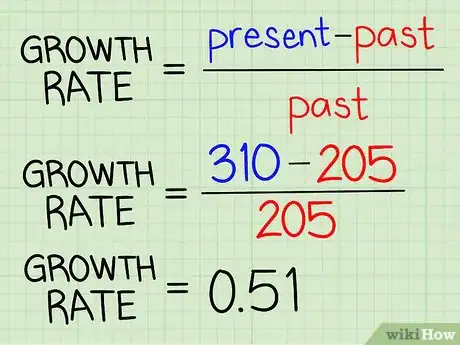 GROWTH RATE = present-past
past
GROWTH RATE = 310 - 205
205
GROWTH RATE = 0.51
wikiHow